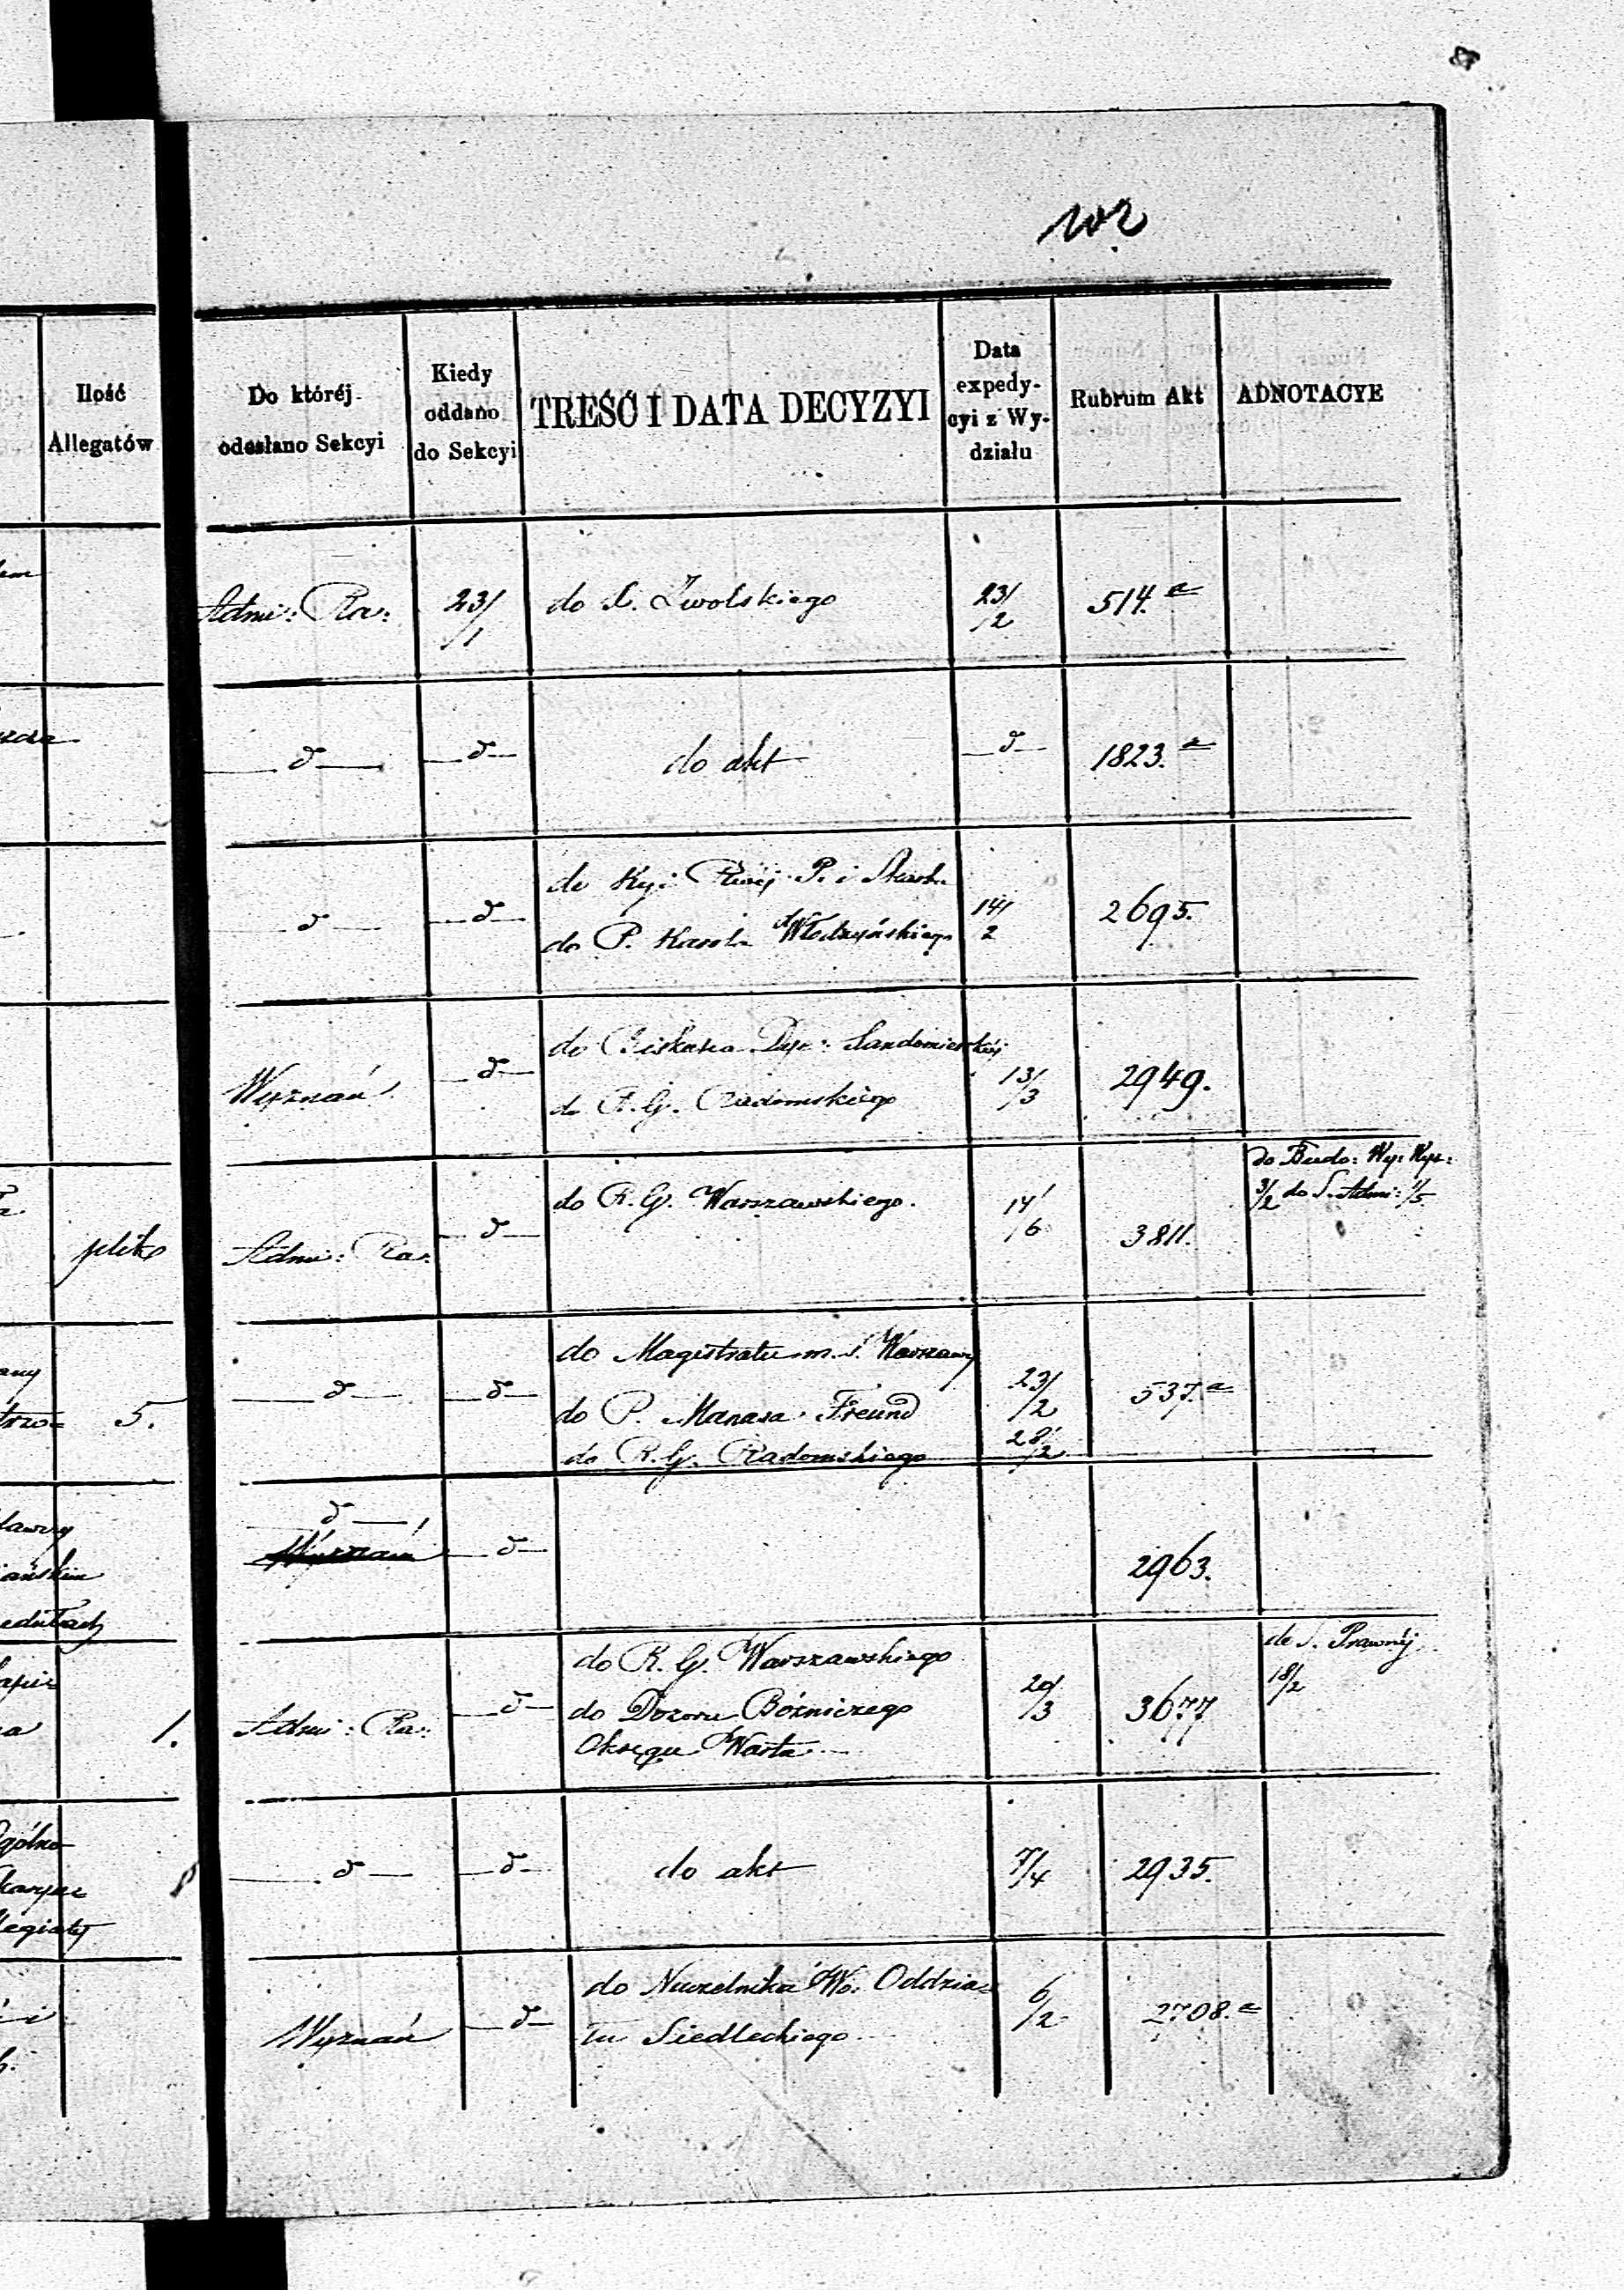 102
Ilość
Allegatów
Do któréj
odesłano Sekcyi
Kiedy
oddano
do Sekcyi
TREŚĆ I DATA DECYZYI
Data
expedy-
cyi z Wy-
działu
Rubrum Akt
ADNOTACYE
Admi: Ra: 23/1 do X. Zwolskiego 23/2 514.a
d d do akt d 1823.a
d d do Kyi Rząj P. i Skarb.
do P. Karola Włodzyńskiego 14/2 2695.
Wyznań d do Biskupa Dye: Sandomierskiéj
do R. G. Radomskiego 13/3 2949.
pliko Admi: Ra: d do R. G. Warszawskiego. 14/6 3811. do Budo: Wy: Wyz:
3/2 do S. Admi: 1/5
any
5. d d do Magistratu m. S. Warszawy
do P. Manasa Freund 23/2 537.a
do R. G. Radomskiego 28/2
d
Wyznań d 2963.
1. Admi: Ra: d do R. G. Warszawskiego
do Dozoru Bóżniczego
Okręgu Warta 20/3 3677 do S. Prawnéj
18/2
d d do akt 7/4 2935.
Wyznań d do Naczelnika Wo: Oddzia=
łu Siedleckiego 6/2 2708.a